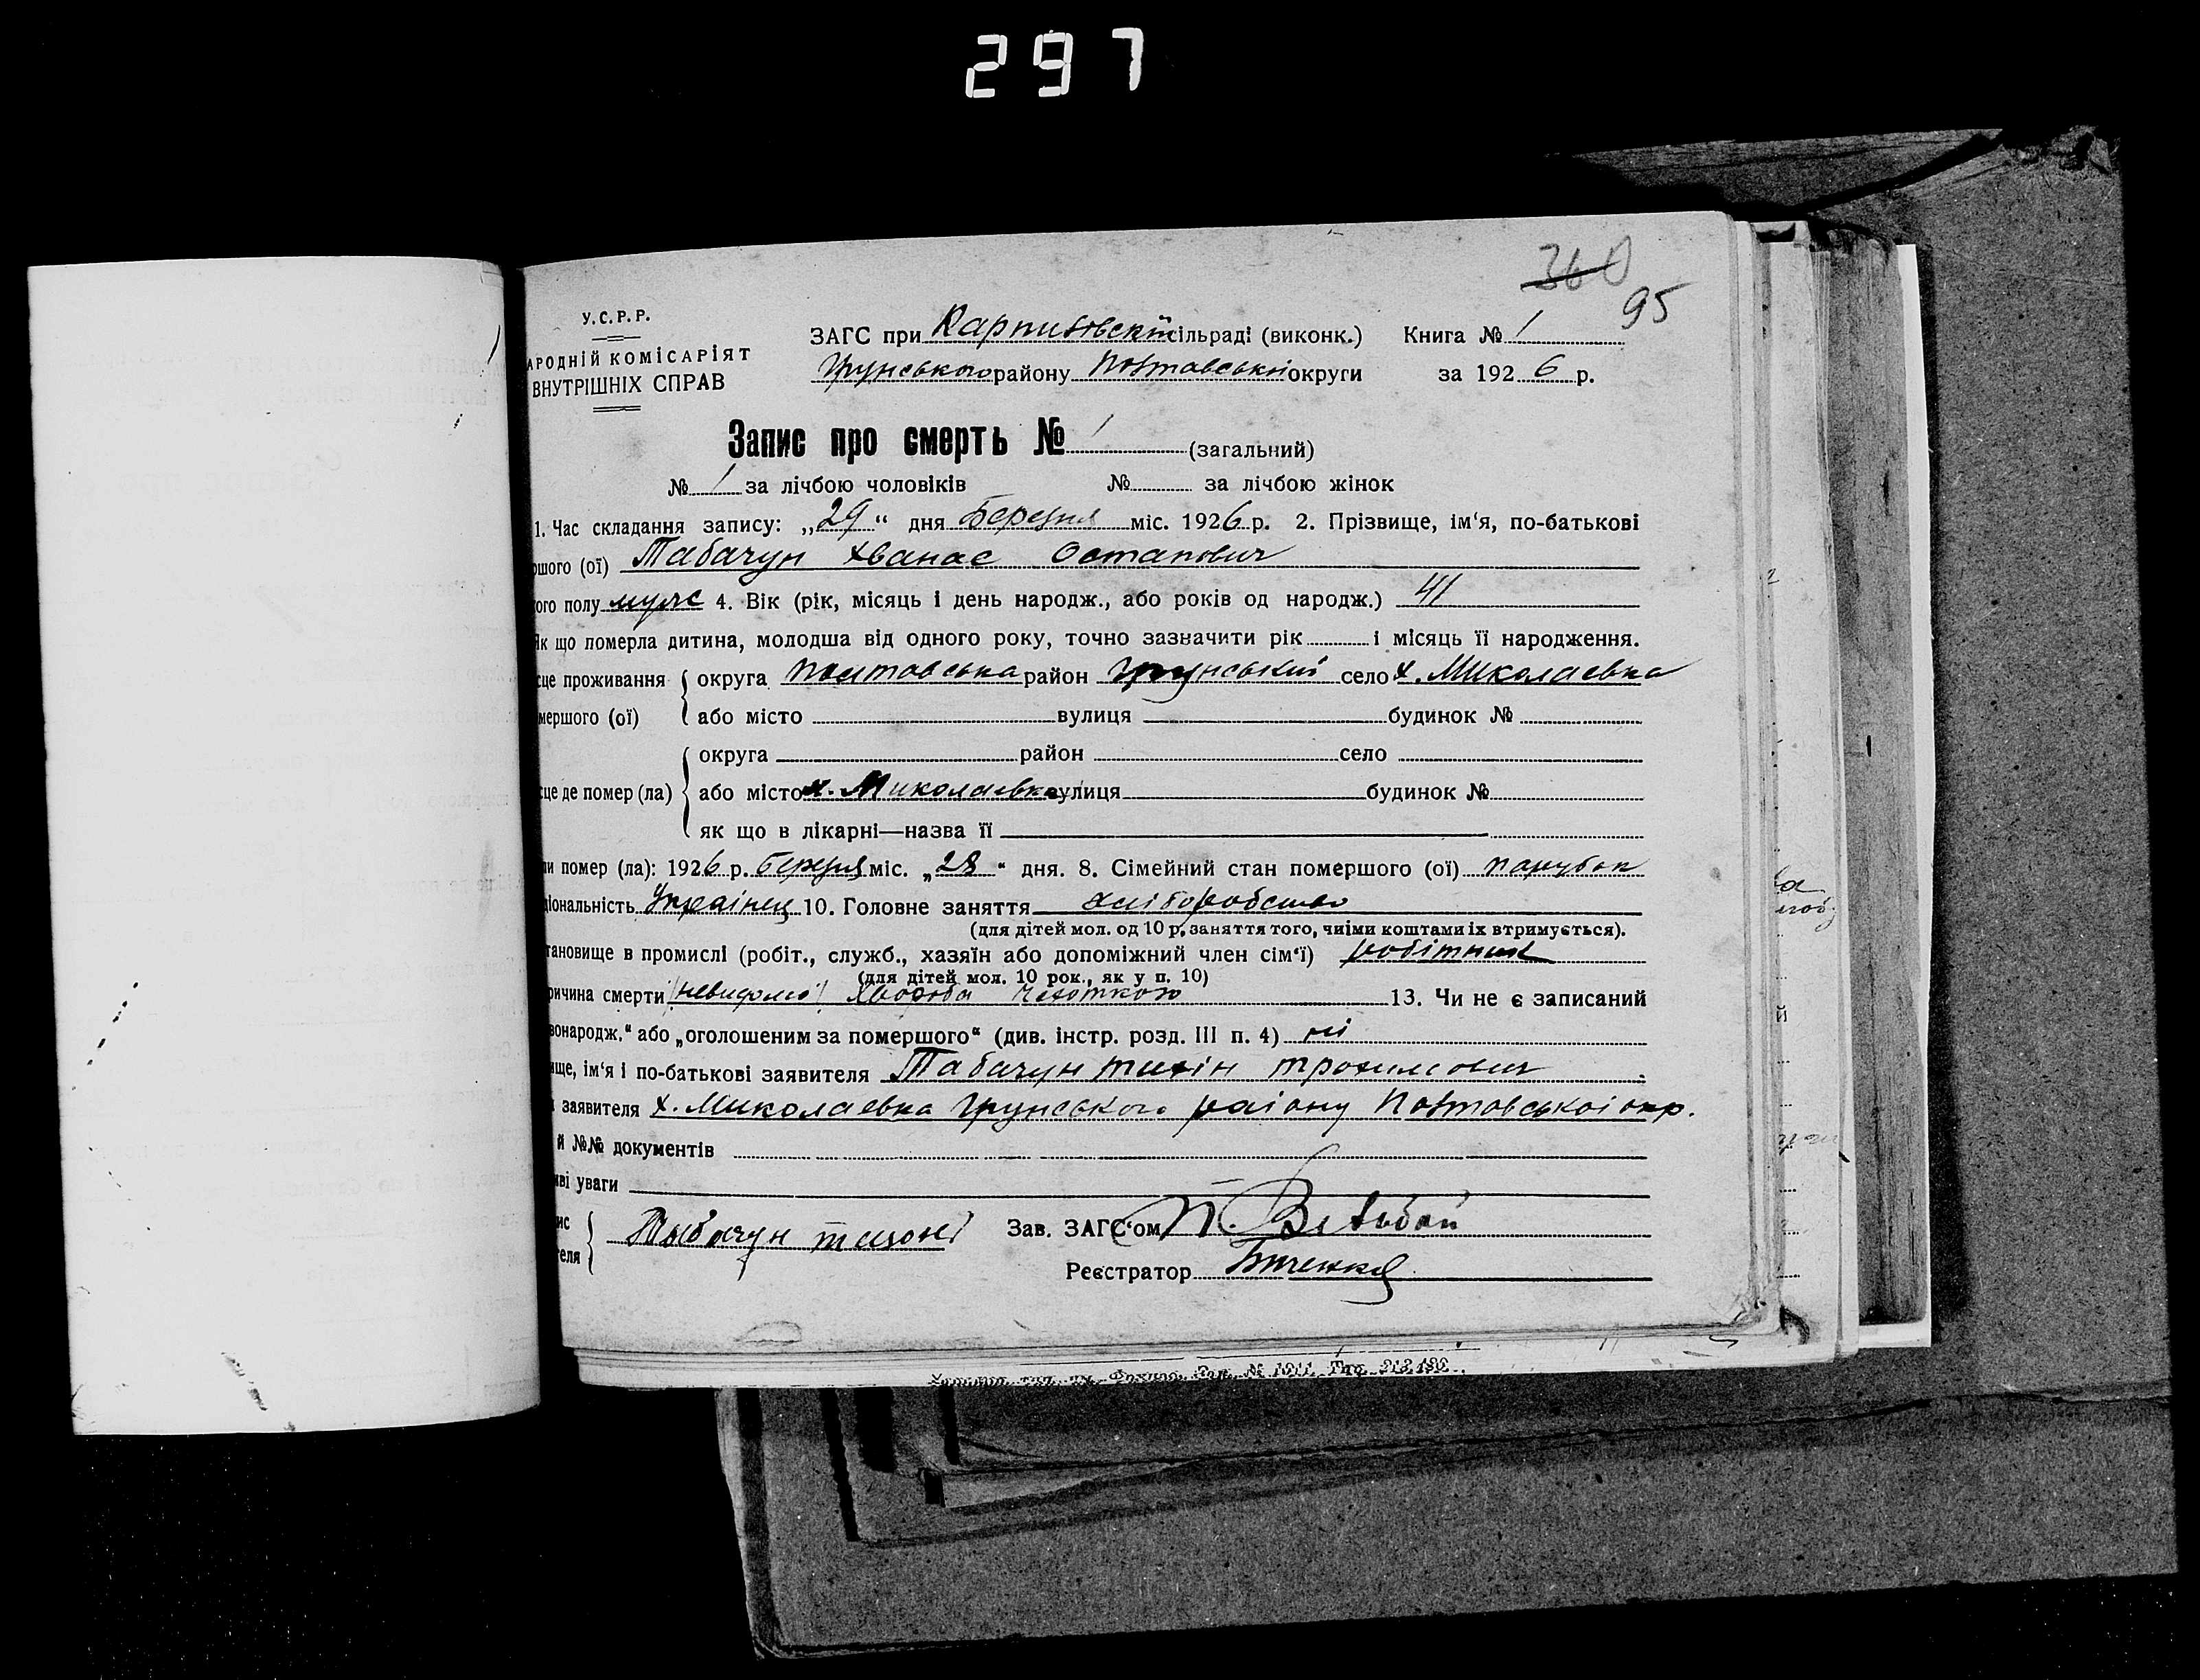 297
360
95
У.С.Р.Р.
АРОДНІЙ КОМІСАРІЯТ
ВНУТРІШНІХ СПРАВ
ЗАГС при Карпиловскій сільраді (виконк.) Книга № 1
Грунського району Полтавської округи за 1926 р.
Запис про смерть № 1 (загальний)
№ 1 за лічбою чоловіків № за лічбою жінок
1. Час складання запису: „29“ дня Березня міс. 1926 р. 2. Прізвище, ім‘я, по-батькові
шого (ої) Табачун Хванас Остапович
ого полу муж 4. Вік (рік, місяць і день народж., або років од народж.) 41
Як що померла дитина, молодша від одного року, точно зазначити рік і місяць її народження.
сце проживання округа Полтавська район Грунський село х. Миколаевка
мершого (ої) або місто вулиця будинок №
округа район село
сце де помер (ла) або місто х. Миколаевка вулиця будинок №
як що в лікарні—назва її
ли помер (ла): 1926 р. березня міс. „28“ дня. 8. Сімейний стан помершого (ої) парубок
ціональність Українец 10. Головне заняття хліборобство
(для дітей мол. од 10 р, заняття того, чиїми коштами їх втримується).
тановище в промислі (робіт., служб., хазяїн або допоміжний член сім‘ї) робітник
(для дітей мол. 10 рок., як у п. 10)
ричина смерти невидомо 13. Чи не є записаний
вонародж.“ або „оголошеним за помершого“ (див. інстр. розд. III п. 4) ні
ище, ім‘я і по-батькові заявителя Табачун тихін трохимович
заявителя х. Миколаевка Грунського раіону Полтовськоі окр.
й №№ документів
иві уваги
ис Табачун
теля
Зав. ЗАГС‘ом П.
Реєстратор